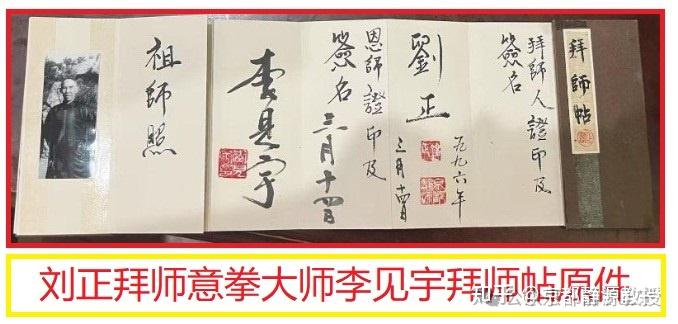 拜師帖
拜師人證印及
簽名
一九九六年
劉正
三月十四日
恩師證印及
簽名 三月十四日
李見宇
祖師照
刘正拜师意拳大师李见宇拜师帖原件
知乎 @京都静源教授